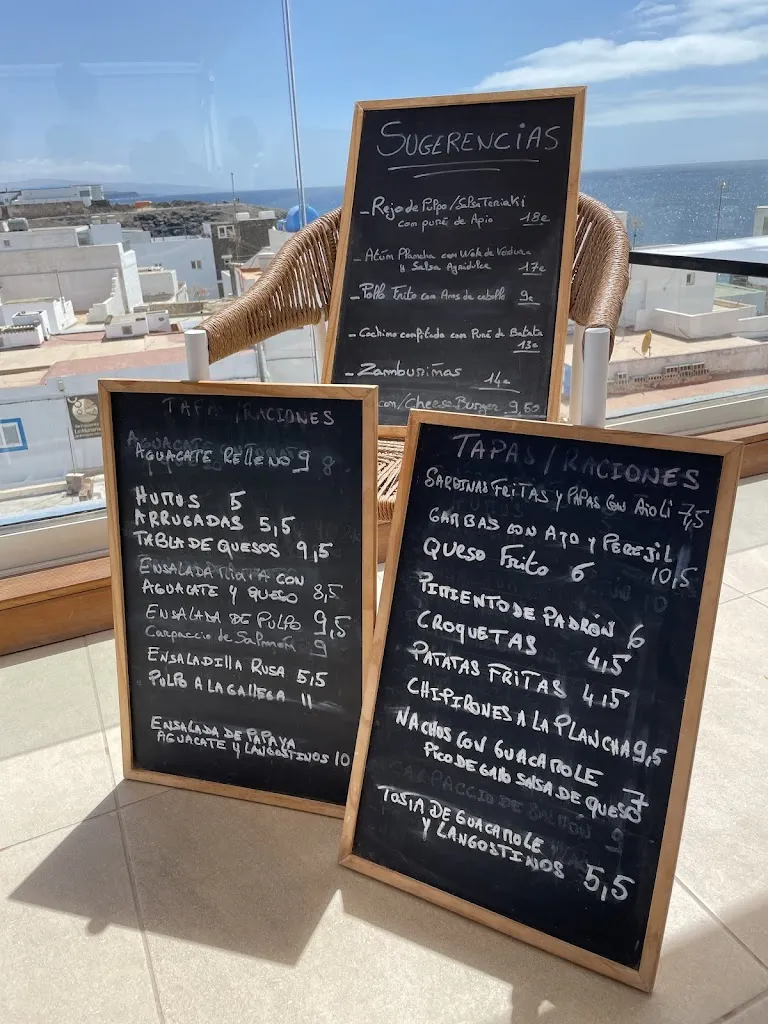 SUGERENCIAS
- Rejo de Pulpo / Salsa Teriaki
con puré de Apio 18€
- Atún Plancha con Wok de Verdura
y Salsa Agridulce 17€
- Pollo Frito con Aros de cebolla 9€
- Cochino confitado con Puré de Batata
13€
- Zamburiñas 14€
con/Cheese Burger 9,50
TAPAS /RACIONES
AGUACATE RELLENO 9
HUMUS 5
ARRUGADAS 5,5
TABLA DE QUESOS 9,5
ENSALADA MIXTA CON
AGUACATE Y QUESO 8,5
ENSALADA DE PULPO 9,5
Carpaccio de Salmón 9
ENSALADILLA RUSA 5,5
PULPO A LA GALLEGA 11
ENSALADA DE PAPAYA
AGUACATE Y LANGOSTINOS 10
TAPAS / RACIONES
SARDINAS FRITAS Y PAPAS CON AIOLI 7,5
GAMBAS CON AJO Y PEREJIL
10,5
QUESO FRITO 6
PIMIENTO DE PADRÓN 6
CROQUETAS 4,5
PATATAS FRITAS 4,5
CHIPIRONES A LA PLANCHA 9,5
NACHOS CON GUACAMOLE
PICO DE GALLO SALSA DE QUESO 7
CARPACCIO DE SALMÓN 9
TOSTA DE GUACAMOLE
Y LANGOSTINOS 5,5